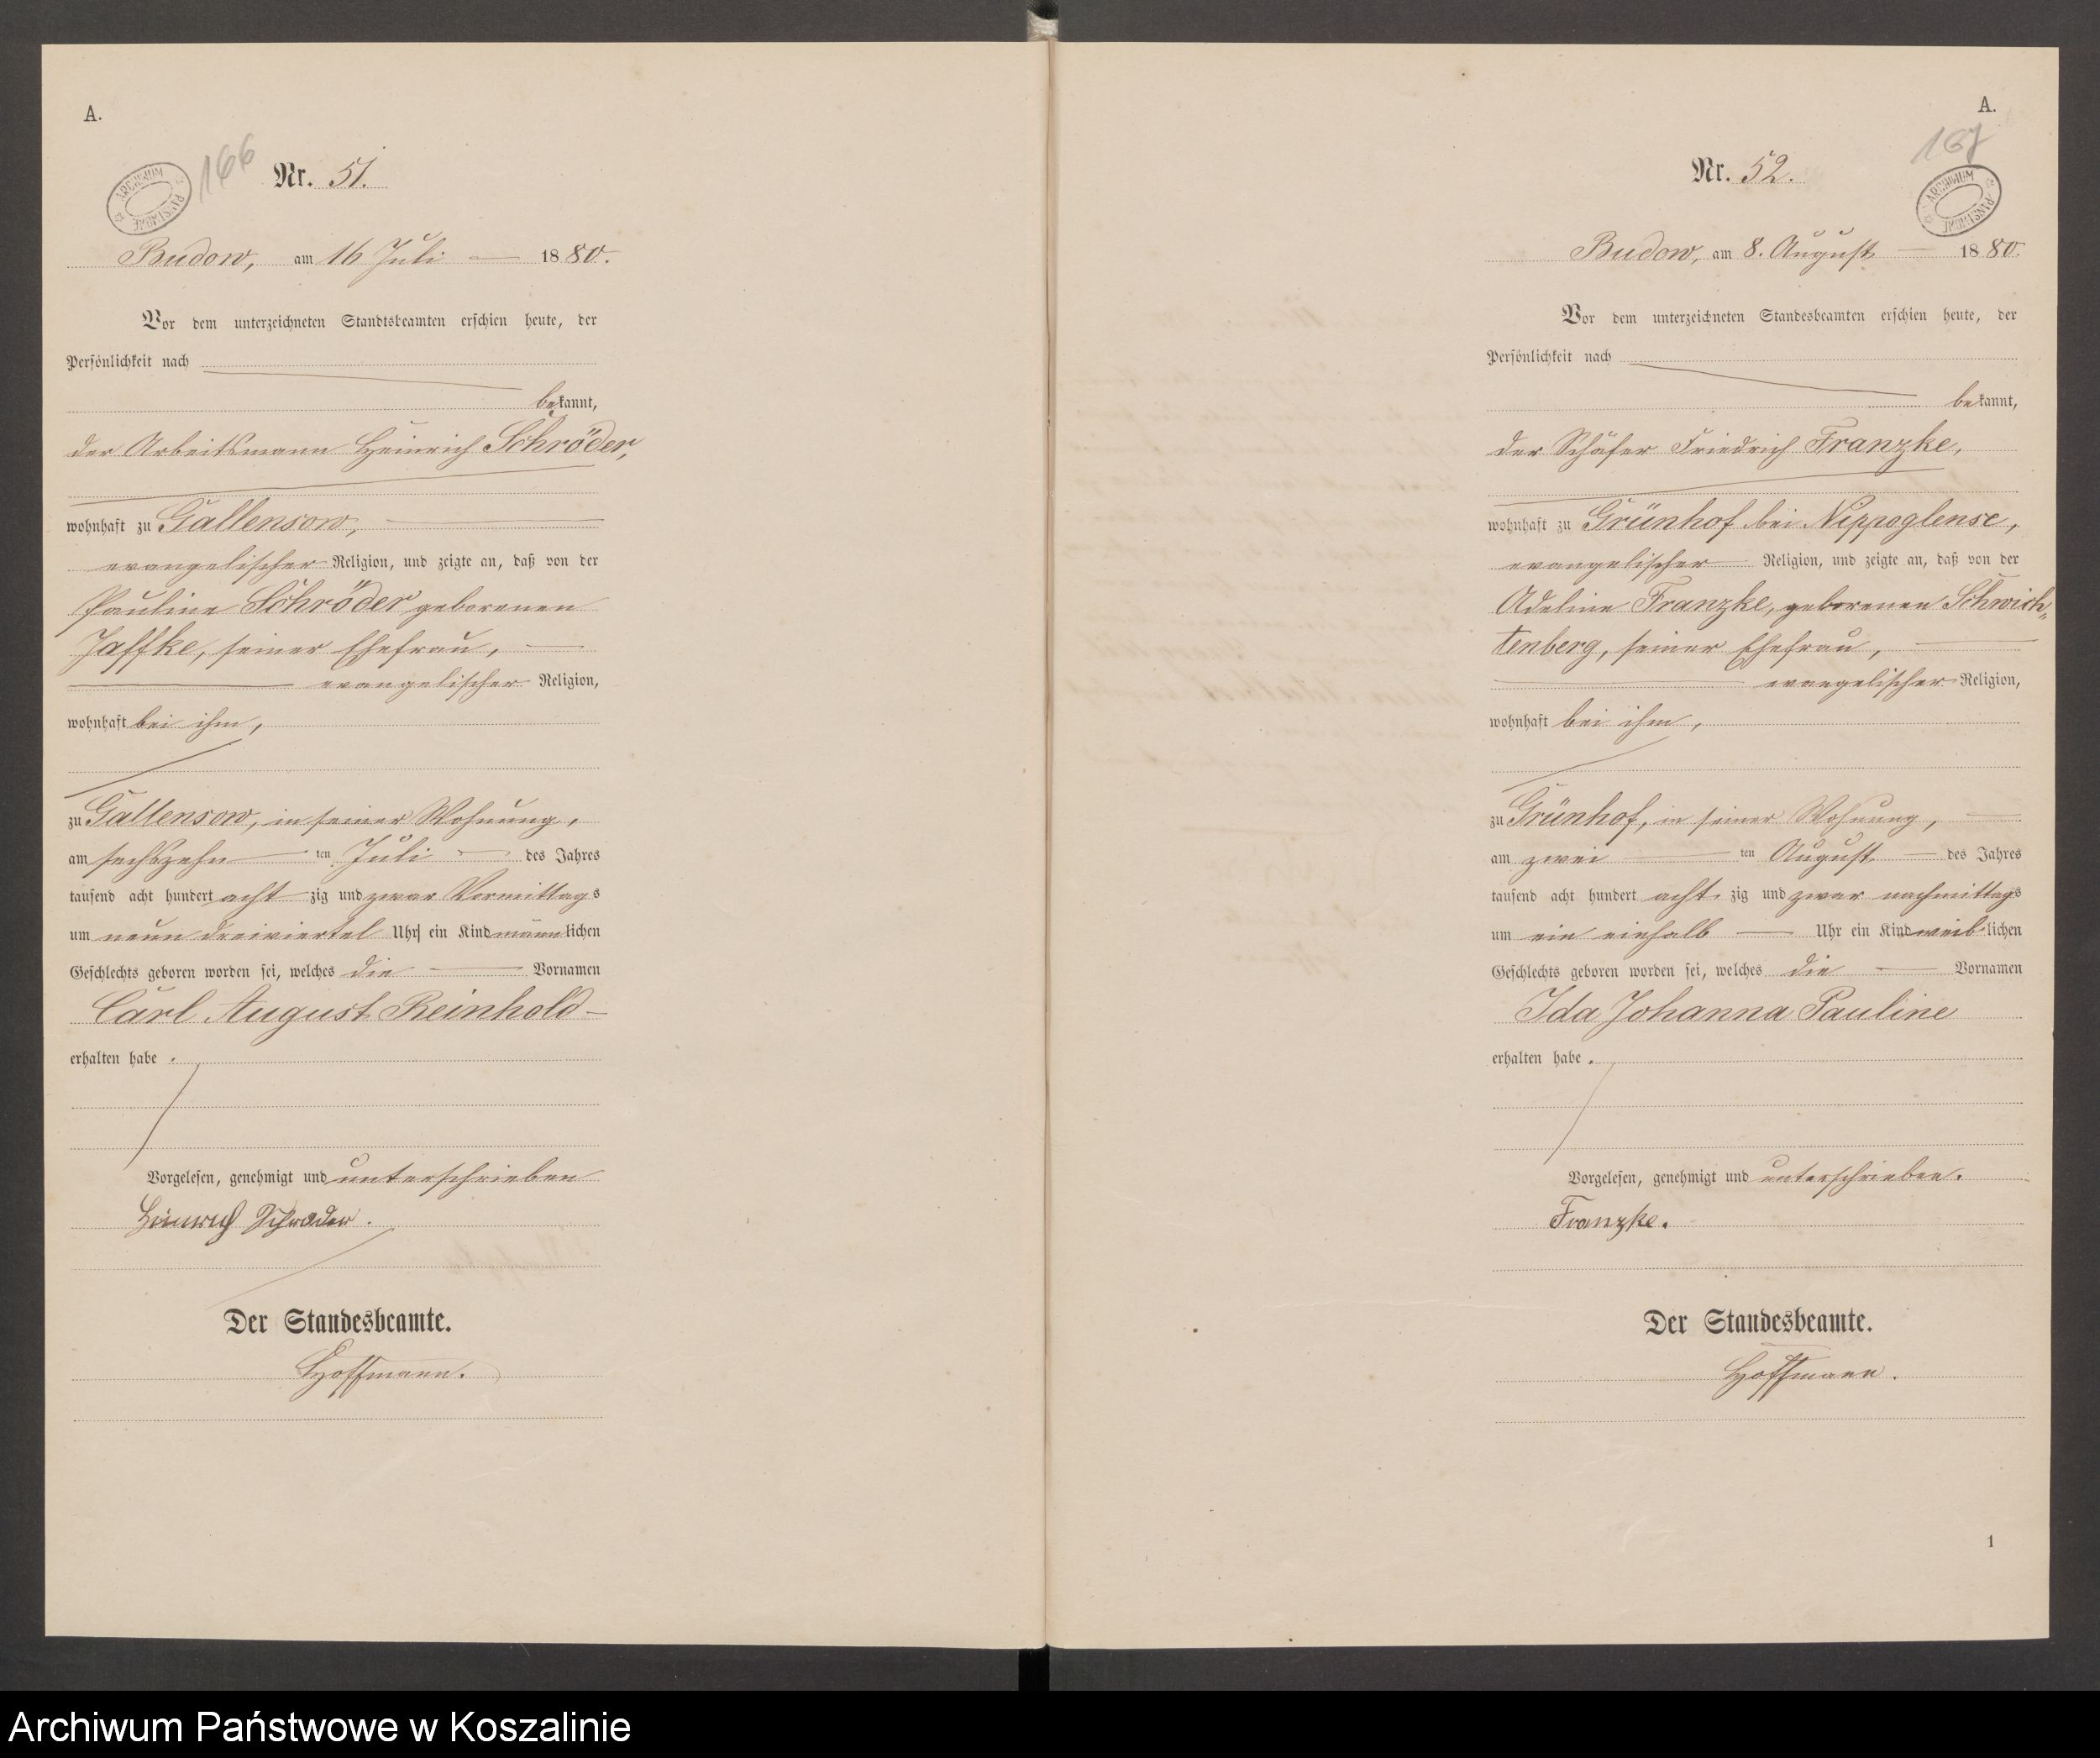 A.
166
Nr. 51.
ARCHIWUM PAŃSTWOWE
Budow, am 16 Juli — 1880.
Vor dem unterzeichneten Standtsbeamten erschien heute, der
Persönlichkeit nach
bekannt,
der Arbeitsmann Heinrich Schröder,
wohnhaft zu Gallensow,
evangelischer Religion, und zeigte an, daß von der
Pauline Schröder geborenen
Jaffke, seiner Ehefrau,
evangelischer Religion,
wohnhaft bei ihm,
zu Gallensow, in seiner Wohnung,
am sechszehn ten Juli des Jahres
tausend acht hundert acht zig und zwar Vormittags
um neun dreiviertel Uhr ein Kind männlichen
Geschlechts geboren worden sei, welches die Vornamen
Carl August Reinhold
erhalten habe.
Vorgelesen, genehmigt und unterschrieben
Heinrich Schröder.
Der Standesbeamte.
Hoffmann.
A.
167
Nr. 52.
ARCHIWUM PAŃSTWOWE
Budow, am 8. August — 1880.
Vor dem unterzeichneten Standesbeamten erschien heute, der
Persönlichkeit nach
bekannt,
der Schäfer Friedrich Franzke,
wohnhaft zu Grünhof bei Nippoglense,
evangelischer Religion, und zeigte an, daß von der
Adeline Franzke, geborenen Schwich„
tenberg, seiner Ehefrau,
evangelischer Religion,
wohnhaft bei ihm,
zu Grünhof, in seiner Wohnung,
am zwei ten August des Jahres
tausend acht hundert acht zig und zwar nachmittags
um ein einhalb Uhr ein Kind weiblichen
Geschlechts geboren worden sei, welches die Vornamen
Ida Johanna Pauline
erhalten habe.
Vorgelesen, genehmigt und unterschrieben.
Franzke.
Der Standesbeamte.
Hoffmann.
1
Archiwum Państwowe w Koszalinie